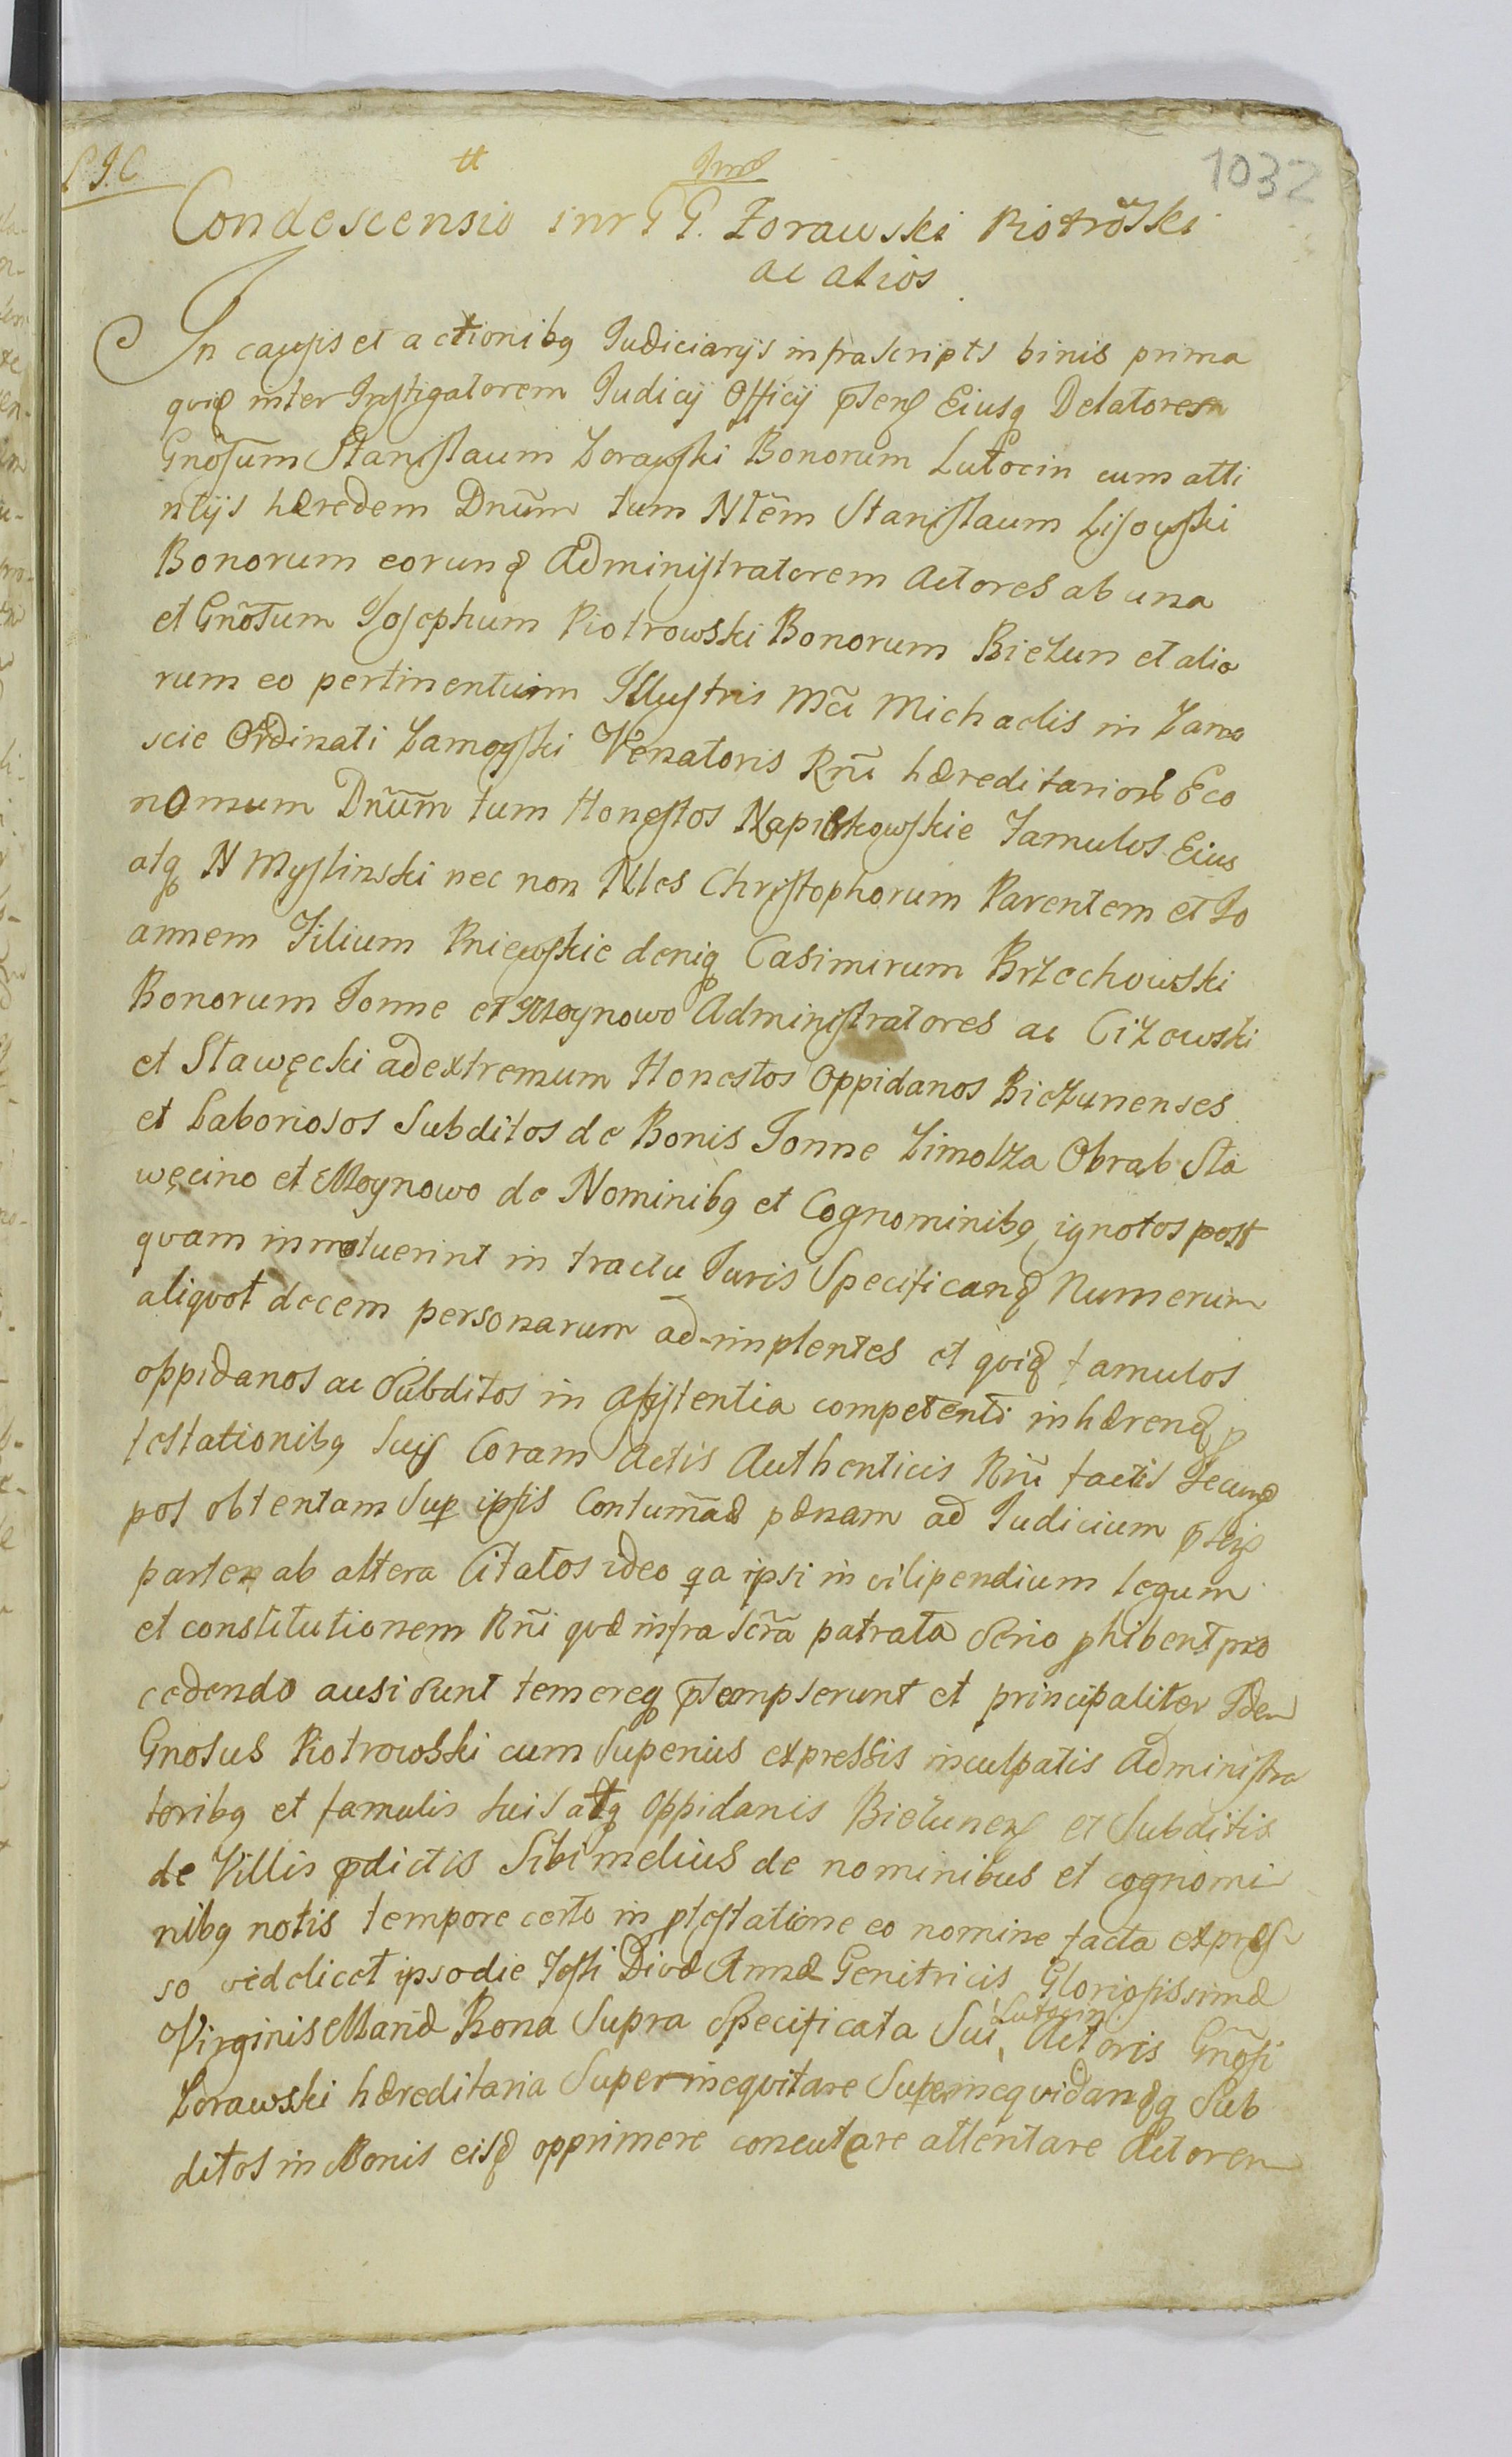 1032
Condescensio intr GG. Zorawski Piotrõski
ac alios
In causis et actionibq Judiciarijs infrascripts binis prima
quiđ inter Instigatorem Judicij Officij Eiusq Delatorem
Gnõsum Stanislaum Zorawski Bonorum Lutocin cum atti
ntijs hæredem Dnũm tum Nt̃em Stanislaum Lisowski
Bonorum eorund Administratorem Actores ab una
et Gnõsum Josephum Piotrowski Bonorum Biezun et alio
rum eo pertinentium Illustris Mc̃i Michaelis in Zamo
scie Ordinati Zamoyski Venatoris Rñi hæreditarior Eco
nomum Dnũm tum Honestos Napi kowskie Famulos Eius
atq N Myslinski nec non Ntes Christophorum Parentem et Jo
annem Filium Pniewskie deniq Casimirum Brzechowski
Bonorum Jonne et Moynowo Administratores ac Cizowski
et Stawęcki ad extremum Honestos Oppidanos Biezunenses
et Laboriosos Subditos de Bonis Jonne Zimolza Obrab Sta
węcino et Moynowo de Nominibq et Cognominibq ignotos post
quam innotuerint in tractu Juris Specificand Numerum
aliquot decem personarum ad-implentes et quiđ famulos
oppidanos ac Subditos in assistentia competenti inhærend p
testationibq Suis Coram Actis Authenticis Rñi factis Secund
pos obtentam Sup ipsis Contumãæ pænam ad Judicium
partem ab altera Citatos ideo qa ipsi in vilipendium legum
et constitutionem Rñi quæ infra Scr̃a patrata Serio phibent pro
cedendo ausi Sunt temereq psumpserunt et principaliter Iden
Gnosus Piotrowski cum Superius expressis inculpatis Administra
toribq et famulis Suis atq Oppidanis Biezunens et Subditis
de Villis pdictis Sibi melius de nominibus et cognomi
nibq notis tempore certo in ptestatione eo nomine facta expres
so videlicet ipso die Festi Divæ Annæ Genitricis Gloriosissimæ
Virginis Mariæ Bona Supra Specificata Sui Lutocin Actoris Gnõsi
Zorawski hæreditaria Superinequitare Superinequidandq Sub
ditos in Bonis eisd opprimere concutere attentare Actorem